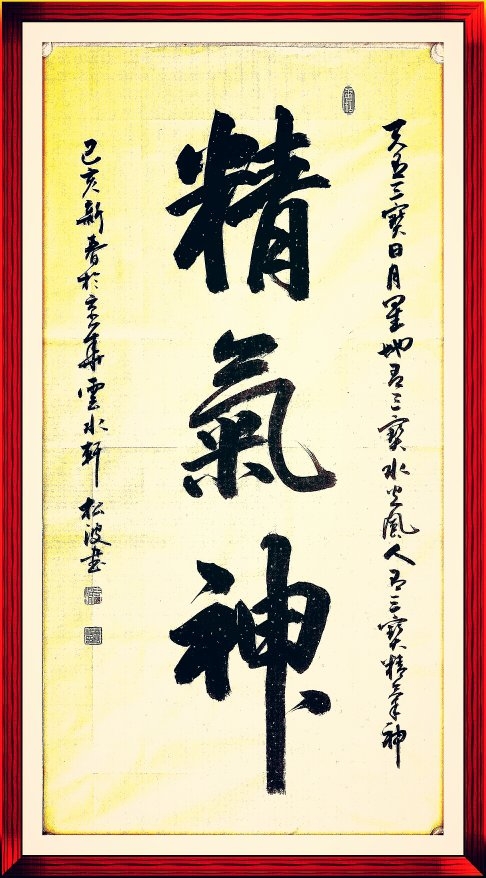 天有三寶日月星地有三寶水火風人有三寶精氣神
精氣神
己亥新春於京華雲水軒 松波書